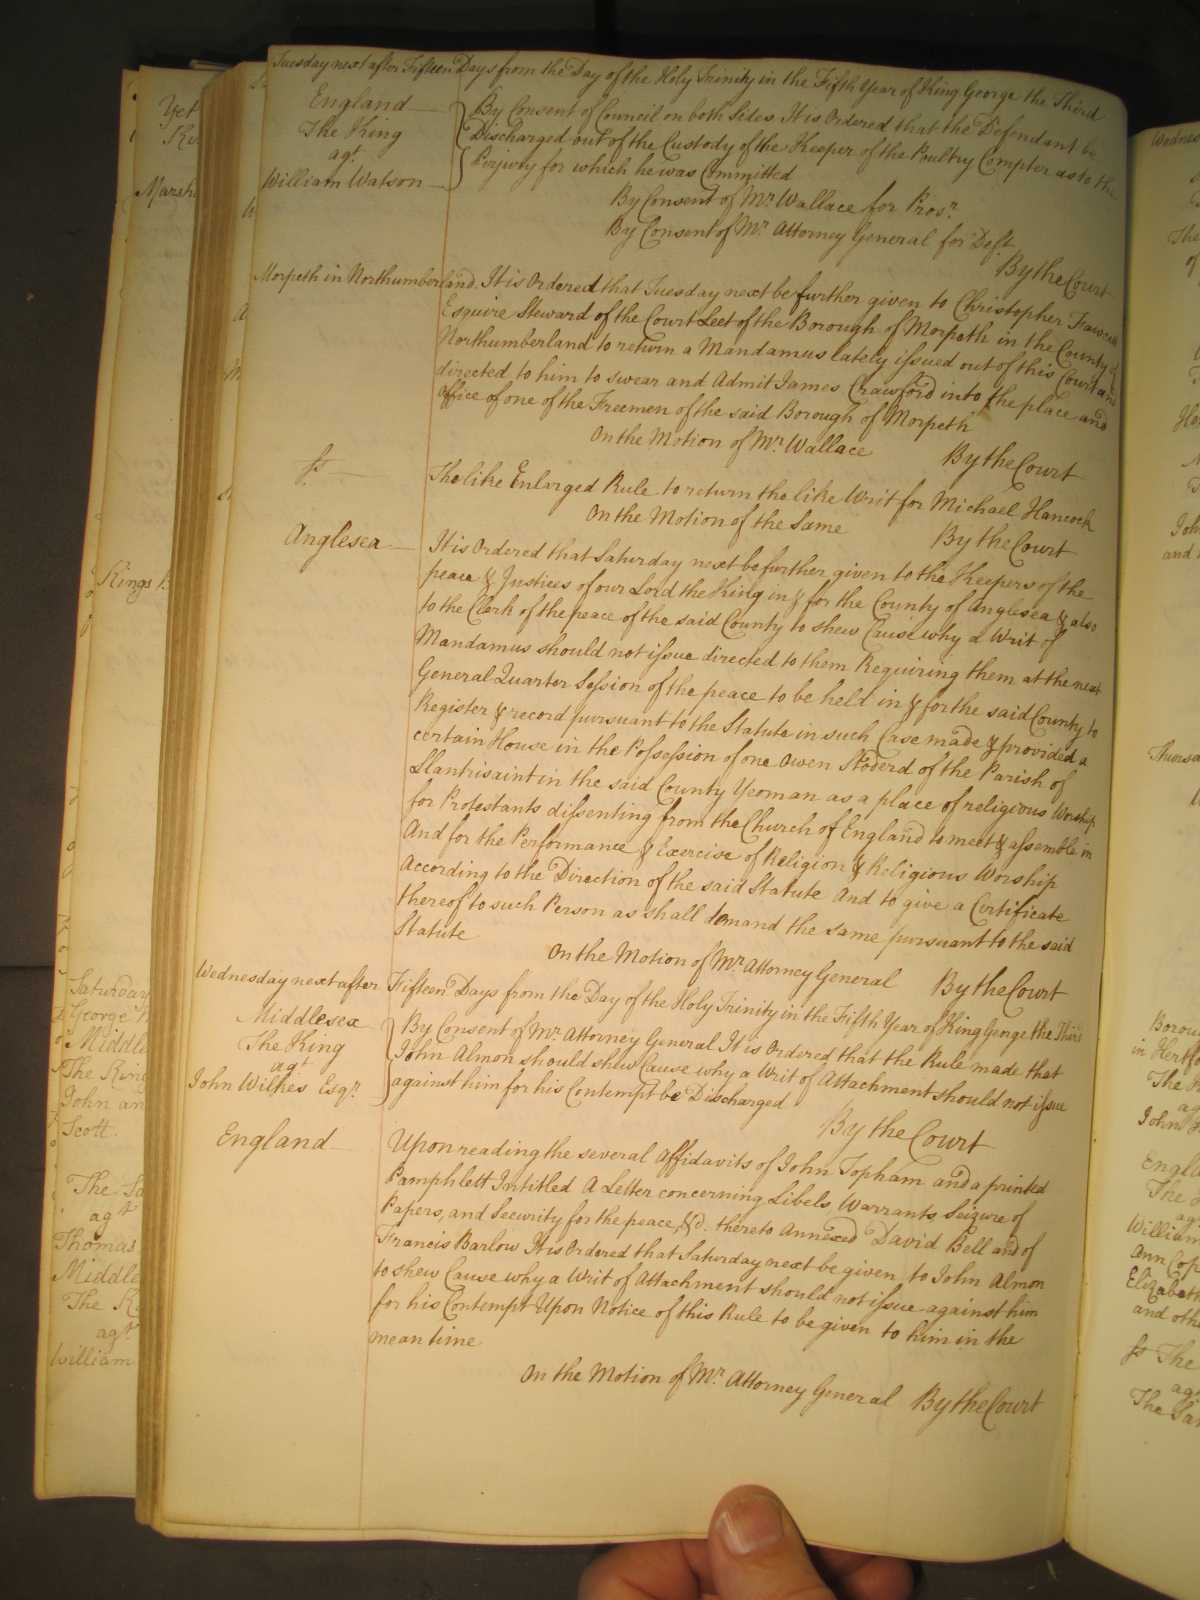 Tuesday next after Fifteen Days from the Day of the Holy Trinity in the Fifth Year of King George the Third
England
The King
agt
William Watson
By Consent of Council on both Sides It is Ordered that the Defendant be
Discharged out of the Custody of the Keeper of the Poultry Compter as to the
Perjury for which he was Committed
By Consent of Mr. Wallace for Prosr.
By Consent of Mr. Attorney General for Deft
By the Court
Morpeth in Northumberland. It is Ordered that Tuesday next be further given to Christopher Fawcett
Esquire Steward of the Court Leet of the Borough of Morpeth in the County of
Northumberland to return a Mandamus lately issued out of this Court and
directed to him to swear and Admit James Crawford into the place and
Office of one of the Freemen of the said Borough of Morpeth
On the Motion of Mr. Wallace By the Court
Ss
The like Enlarged Rule to return the like Writ for Michael Hancock
On the Motion of the Same By the Court
Anglesea
It is Ordered that Saturday next be further given to the Keepers of the
peace & Justices of our Lord the King in & for the County of Anglesea & also
to the Clerk of the peace of the said County to shew Cause why a Writ of
Mandamus should not issue directed to them Requiring them at the next
General Quarter Session of the peace to be held in & for the said County to
Register & record pursuant to the Statute in such Case made & provided a
certain House in the Possession of one Owen Stoderd of the Parish of
Llantrisaint in the said County Yeoman as a place of religious Worship
for Protestants dissenting from the Church of England to meet & assemble in
And for the Performance & Exercise of Religion & Religious Worship
According to the Direction of the said Statute And to give a Certificate
thereof to such Person as shall demand the same pursuant to the said
Statute
On the Motion of Mr. Attorney General By the Court
Wednesday next after Fifteen Days from the Day of the Holy Trinity in the Fifth Year of King George the Third
Middlesex
The King
agt
John Wilkes Esqr.
By Consent of Mr. Attorney General It is Ordered that the Rule made that
John Almon should shew Cause why a Writ of Attachment should not issue
against him for his Contempt be Discharged
By the Court
England
Upon reading the several Affidavits of John Topham and a printed
Pamphlett Intitled A Letter concerning Libels, Warrants, Seizure of
Papers, and Security for the peace, &c. thereto Annexed David Bell and of
Francis Barlow It is Ordered that Saturday next be given to John Almon
to shew Cause why a Writ of Attachment should not issue against him
for his Contempt Upon Notice of this Rule to be given to him in the
mean time
On the Motion of Mr. Attorney General By the Court
Yet
Marsh
Kings B
Saturday
George
Middle
The King
John an
Scott.
The
agt
Thomas
Middle
The
agt
William
The
John
and
Borou
in Hertfo
The
John
Engla
The
William
Ann Cop
Elizabeth
and oth
Ss The
agt
The